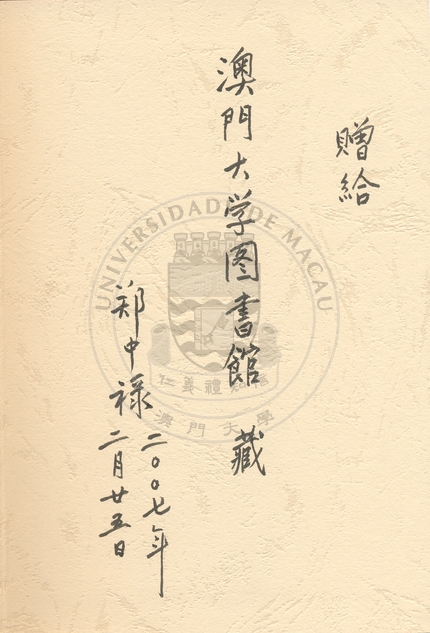 贈給
澳門大学图書館 藏
郑中禄
二〇〇七年
二月廿五日
UNIVERSIDADE DE MACAU
仁義禮知信
澳門大學